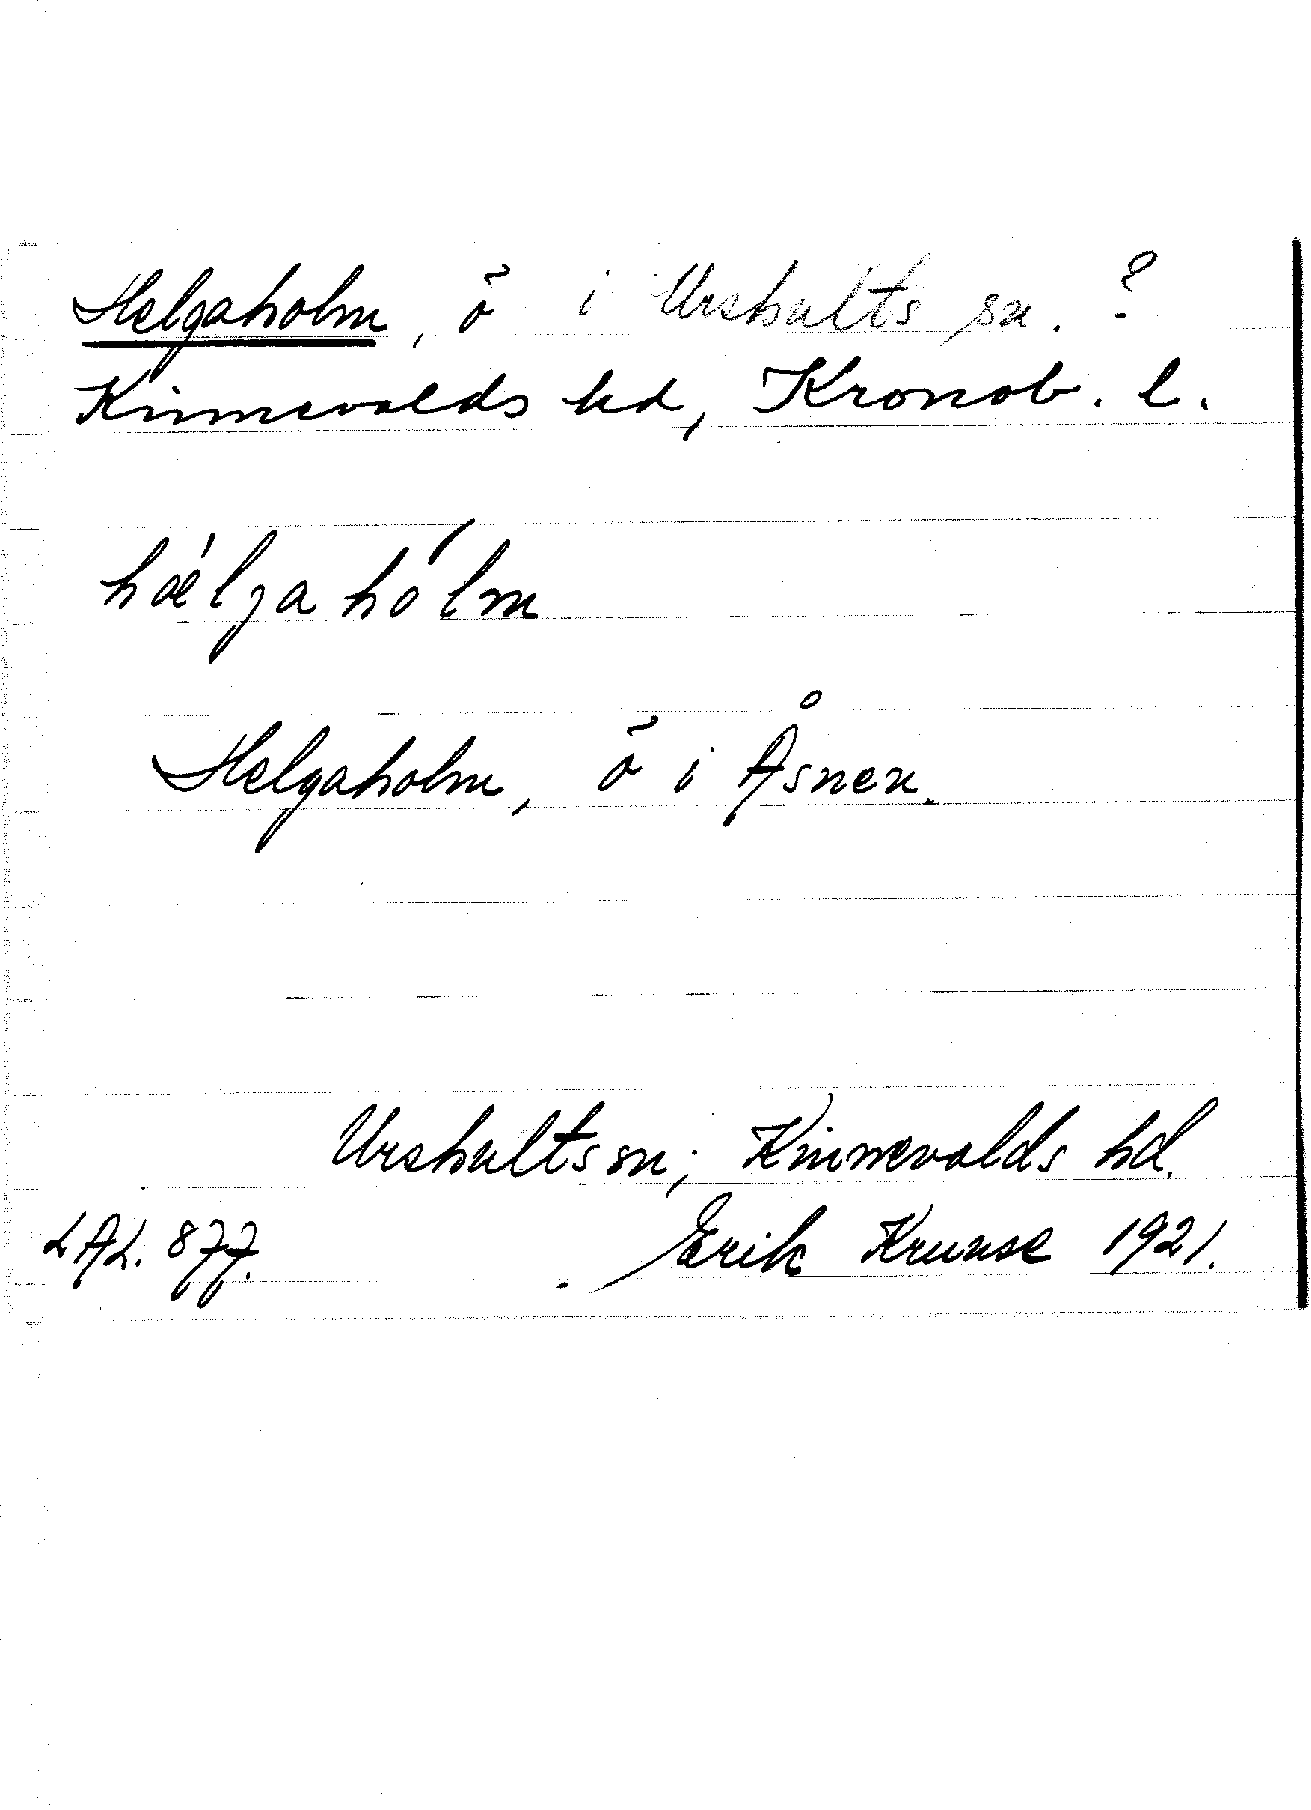 Helgaholm, ö i Urshults sn. ?
Kinnevalds hd, Kronob. l.
hǽljahólm
Helgaholm, ö i Åsnen.
Urshults sn; Kinnevalds hd.
LAL. 877.
Erik Krunse 1921.